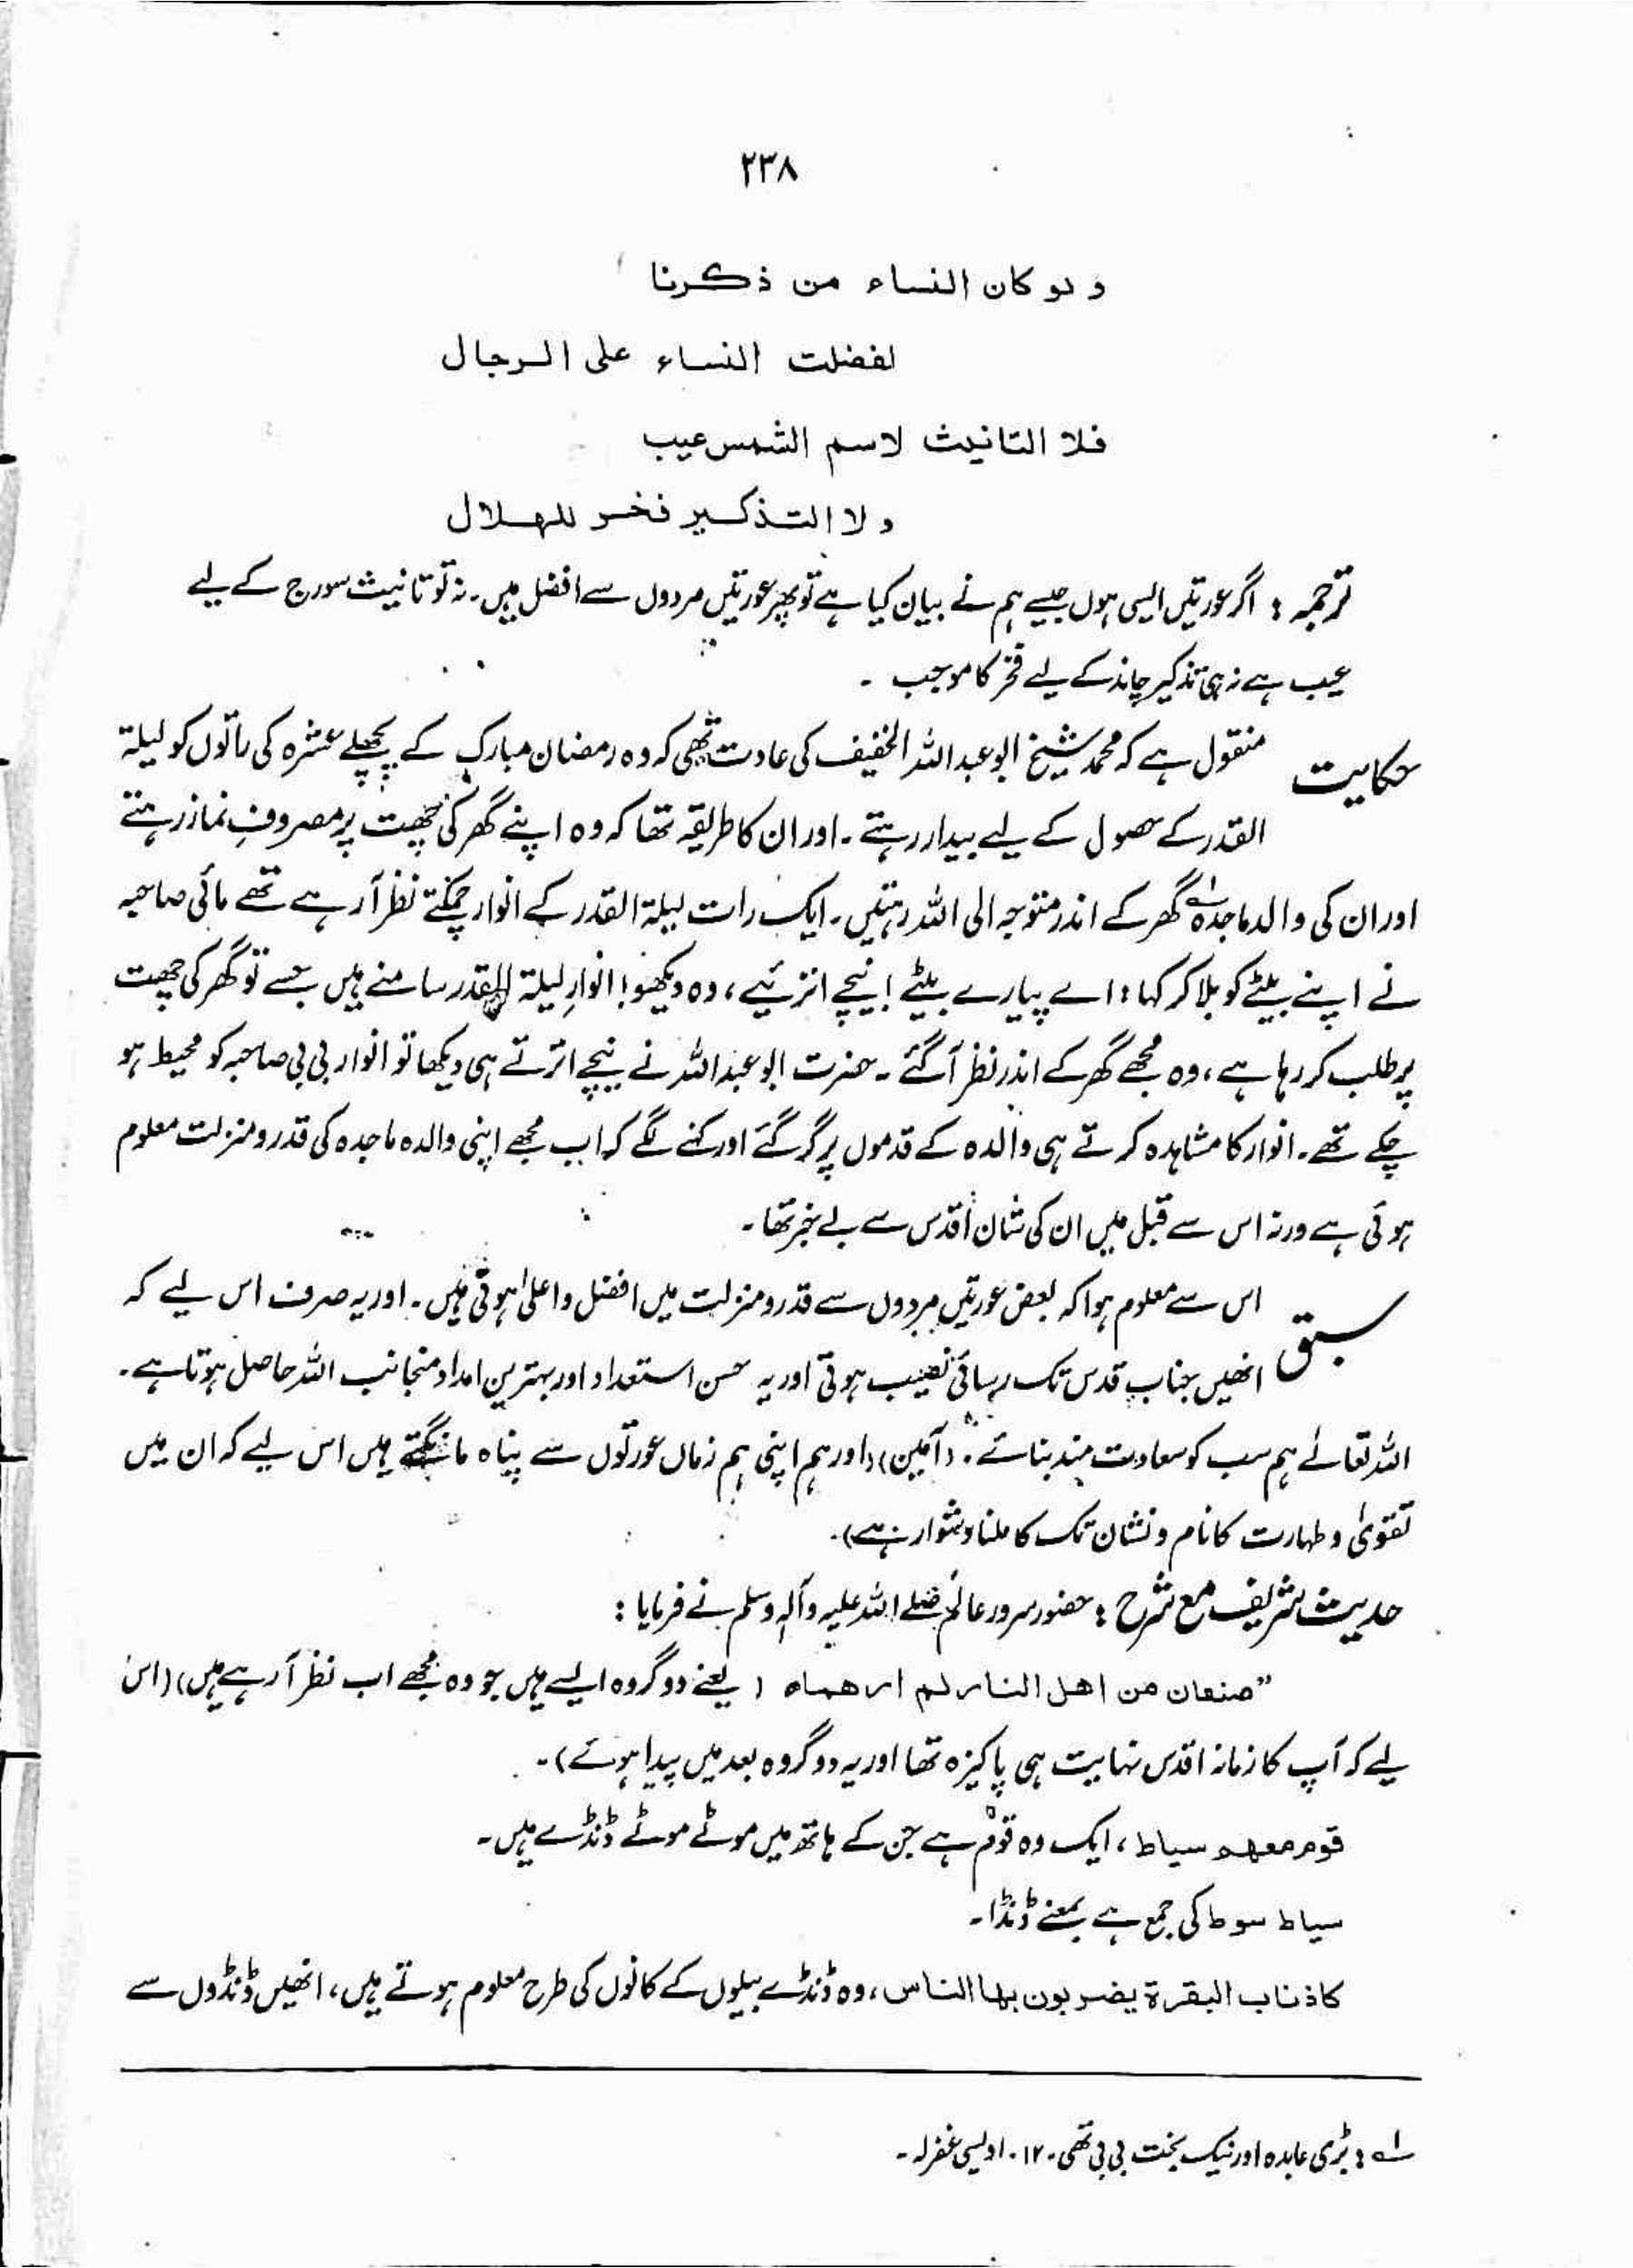 ۲۳۸
و لو كان النساء من ذكرنا
لفضلت النساء على الرجال
فلا التانيث لاسم الشمس عيب
و لا التذكير فخر للهلال
ترجمہ : اگر عورتیں ایسی ہوں جیسے ہم نے بیان کیا ہے تو پھر عورتیں مردوں سے افضل ہیں۔ نہ تو تانیث سورج کے لیے
عیب ہے نہ ہی تذکیر چاند کے لیے فخر کا موجب ۔
حکایت منقول ہے کہ محمد شیخ ابو عبد اللہ الخفیف کی عادت تھی کہ وہ رمضان مبارک کے پچھلے عشرہ کی راتوں کو لیلۃ
القدر کے حصول کے لیے بیدار رہتے ۔ اور ان کا طریقہ تھا کہ وہ اپنے گھر کی چھت پر مصروفِ نماز رہتے
اور ان کی والدہ ماجدہ لہ گھر کے اندر متوجہ الی اللہ رہتیں۔ ایک رات لیلۃ القدر کے انوار چمکتے نظر آ رہے تھے مائی صاحبہ
نے اپنے بیٹے کو بلا کر کہا : اے پیارے بیٹے ! نیچے اترئیے ، وہ دیکھو ! انوارِ لیلۃ القدر سامنے ہیں جسے تو گھر کی چھت
پر طلب کر رہا ہے ، وہ مجھے گھر کے اندر نظر آ گئے ۔ حضرت ابو عبد اللہ نے نیچے اترتے ہی دیکھا تو انوار بی بی صاحبہ کو محیط ہو
چکے تھے ۔ انوار کا مشاہدہ کرتے ہی والدہ کے قدموں پر گر گئے اور کہنے لگے کہ اب مجھے اپنی والدہ ماجدہ کی قدر و منزلت معلوم
ہوئی ہے ورنہ اس سے قبل میں ان کی شان اقدس سے بے خبر تھا ۔
سبق اس سے معلوم ہوا کہ بعض عورتیں مردوں سے قدر و منزلت میں افضل و اعلیٰ ہوتی ہیں ۔ اور یہ صرف اس لیے کہ
انھیں جناب قدس تک رسائی نصیب ہوتی اور یہ حسن استعداد اور بہترین امداد منجانب اللہ حاصل ہوتا ہے ۔
اللہ تعالےٰ ہم سب کو سعادت مند بنائے ۔ (آمین) (اور ہم اپنی ہم زماں عورتوں سے پناہ مانگتے ہیں اس لیے کہ ان میں
تقویٰ و طہارت کا نام و نشان تک کا ملنا دشوار ہے) ۔
حدیث شریف مع شرح : حضور سرور عالم صلے اللہ علیہ وآلہ وسلم نے فرمایا :
”صنعان من اهل النار لم ارهماه ( یعنے دو گروہ ایسے ہیں جو وہ مجھے اب نظر آ رہے ہیں) (اس
لیے کہ آپ کا زمانہ اقدس نہایت ہی پاکیزہ تھا اور یہ دو گروہ بعد میں پیدا ہوئے) ۔
قوم معهم سياط ، ایک وہ قوم ہے جن کے ہاتھ میں موٹے موٹے ڈنڈے ہیں ۔
سیاط سوط کی جمع ہے بمعنے ڈنڈا ۔
كاذناب البقرة يضربون بها الناس ، وہ ڈنڈے بیلوں کے کانوں کی طرح معلوم ہوتے ہیں ، انھیں ڈنڈوں سے
لہ : بڑی عابدہ اور نیک بخت بی بی تھی ۔ ۱۲ ۔ اویسی غفرلہ ۔